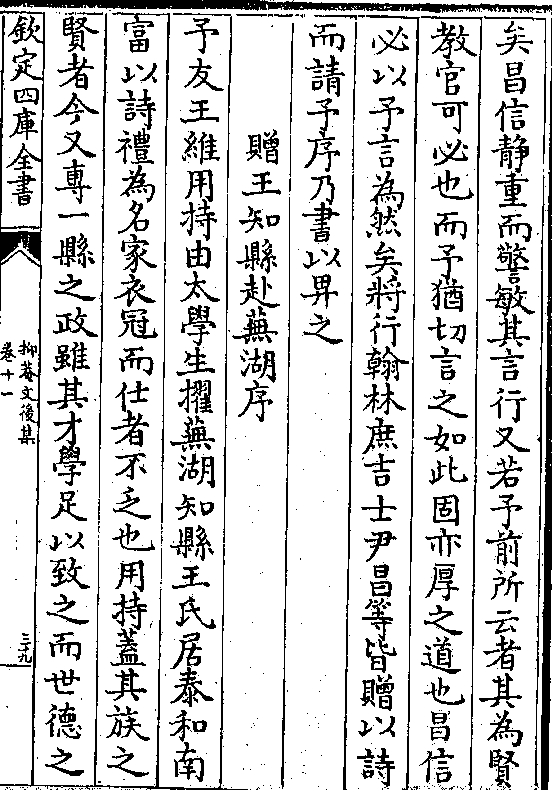 矣昌信静重而警敏其言行又若予前所云者其為賢
教官可必也而予猶切言之如此固亦厚之道也昌信
必以予言為然矣將行翰林庶吉士尹昌等皆贈以詩
而請予序乃書以畀之
贈王知縣赴蕪湖序
予友王維用持由太學生擢蕪湖知縣王氏居泰和南
富以詩禮為名家衣冠而仕者不乏也用持蓋其族之
賢者今又專一縣之政雖其才學足以致之而世德之
欽定四庫全書
抑菴文後集
卷十一
三十九